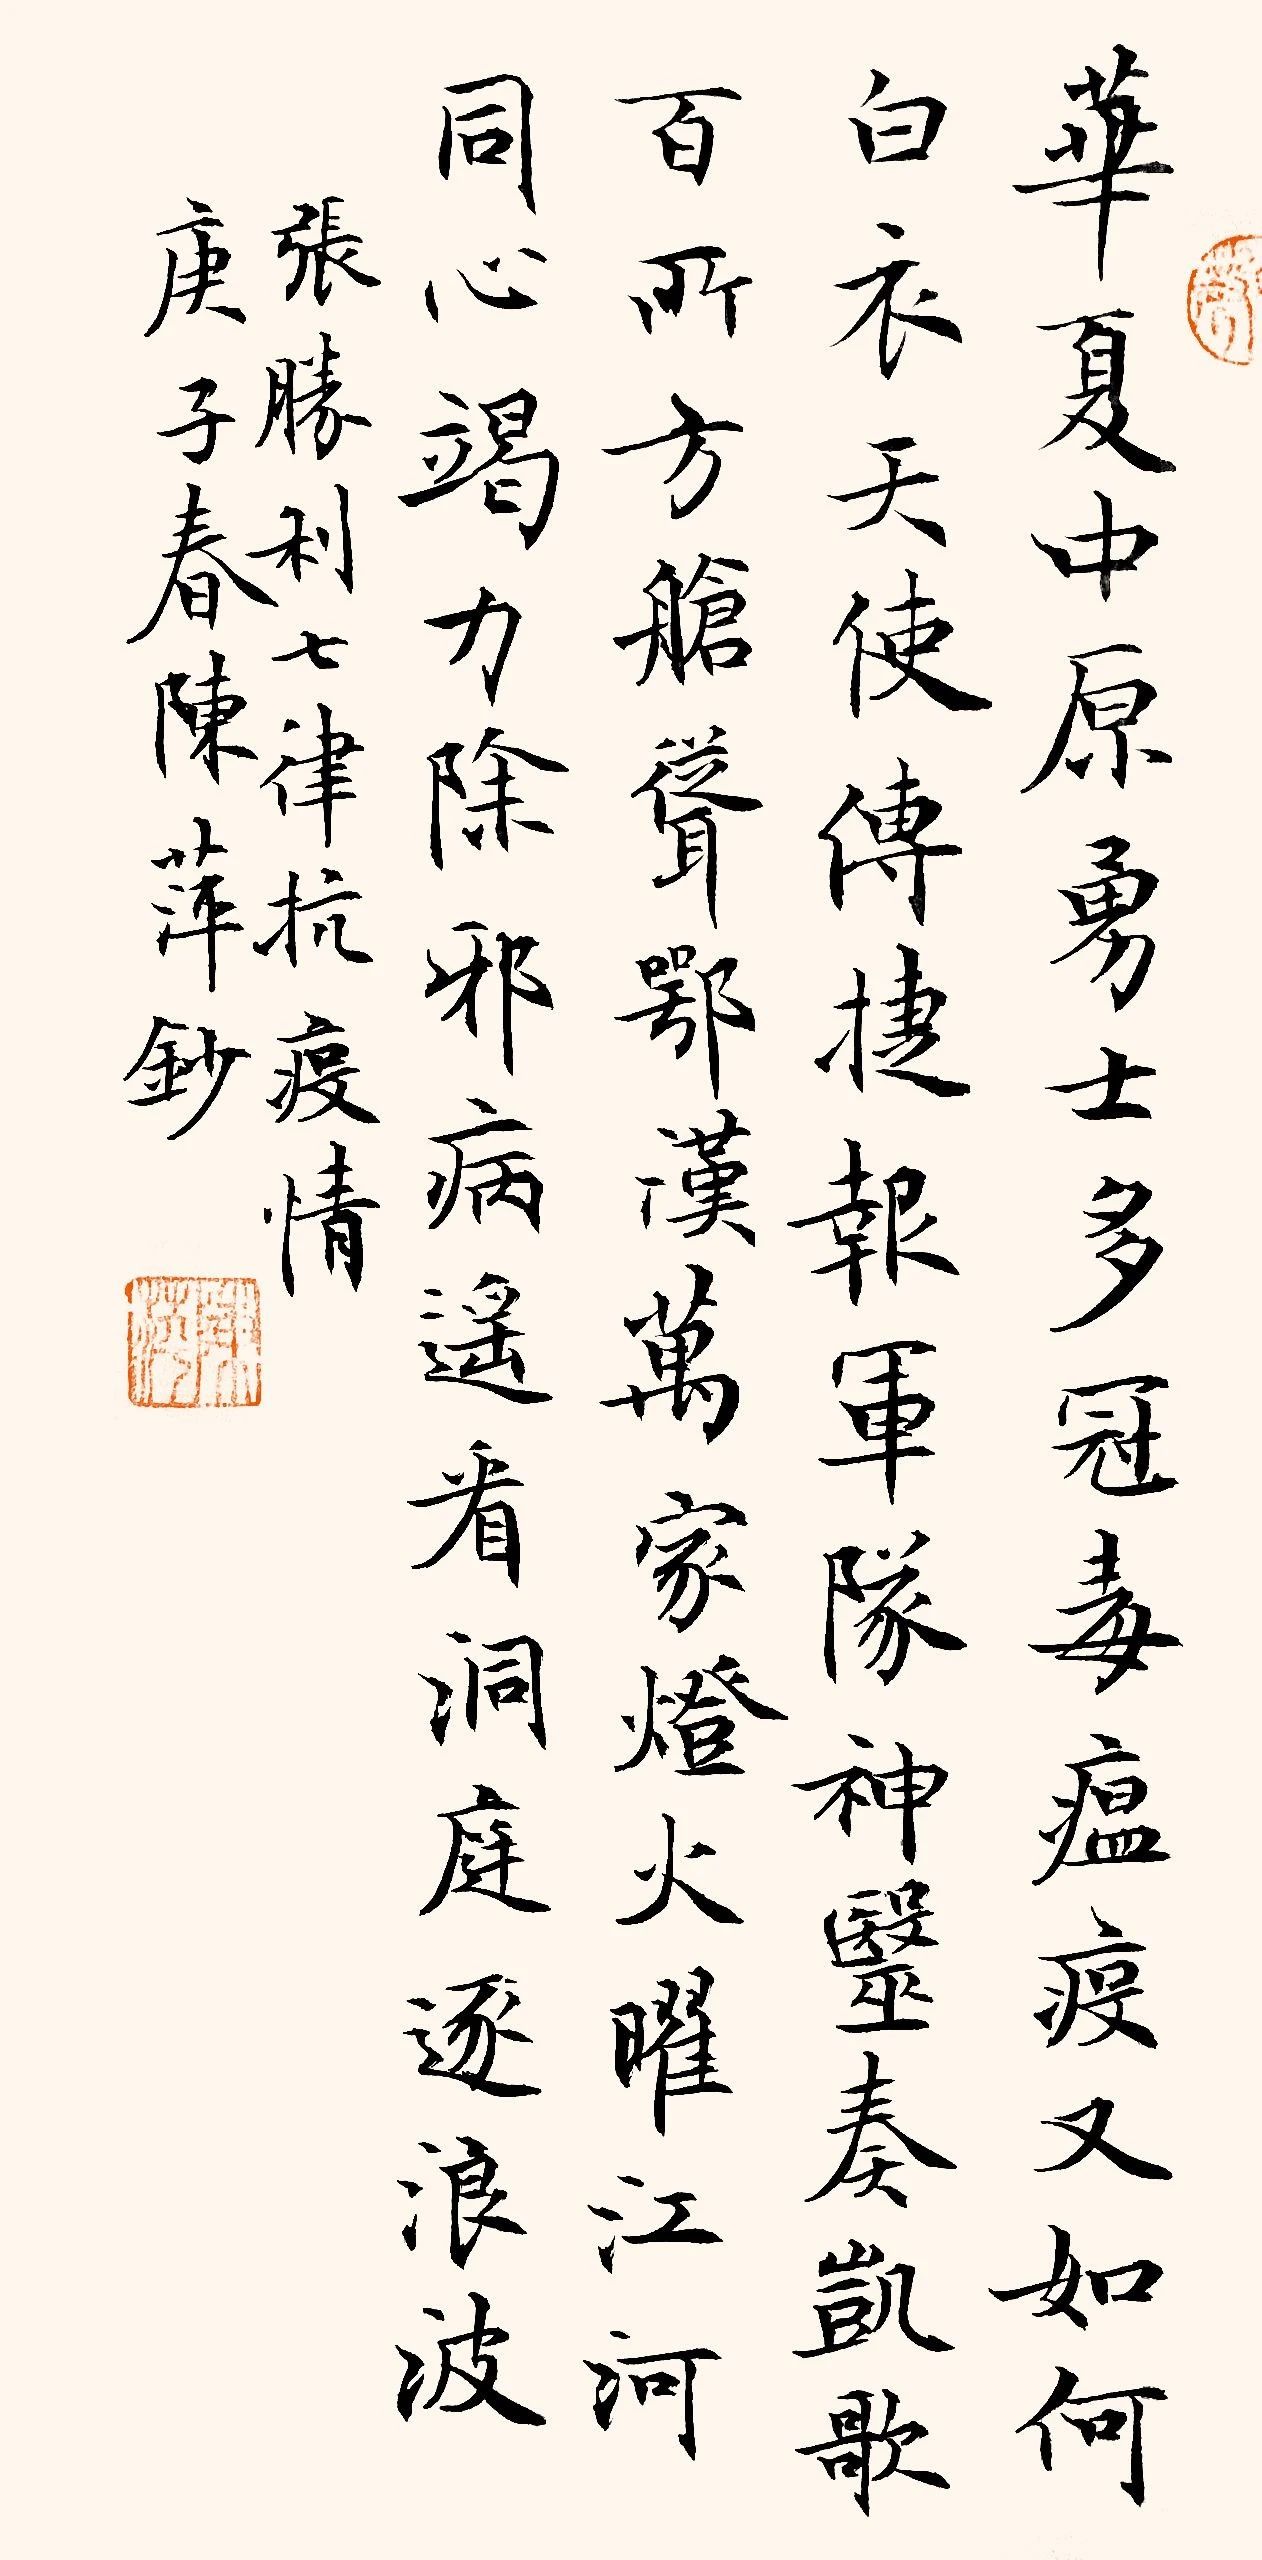 華夏中原勇士多冠毒瘟疫又如何
白衣天使傳捷報軍隊神毉奏凱歌
百所方艙聳鄂漢萬家燈火曜江河
同心竭力除邪病遥看洞庭逐浪波
張勝利七律抗疫情
庚子春陳萍鈔